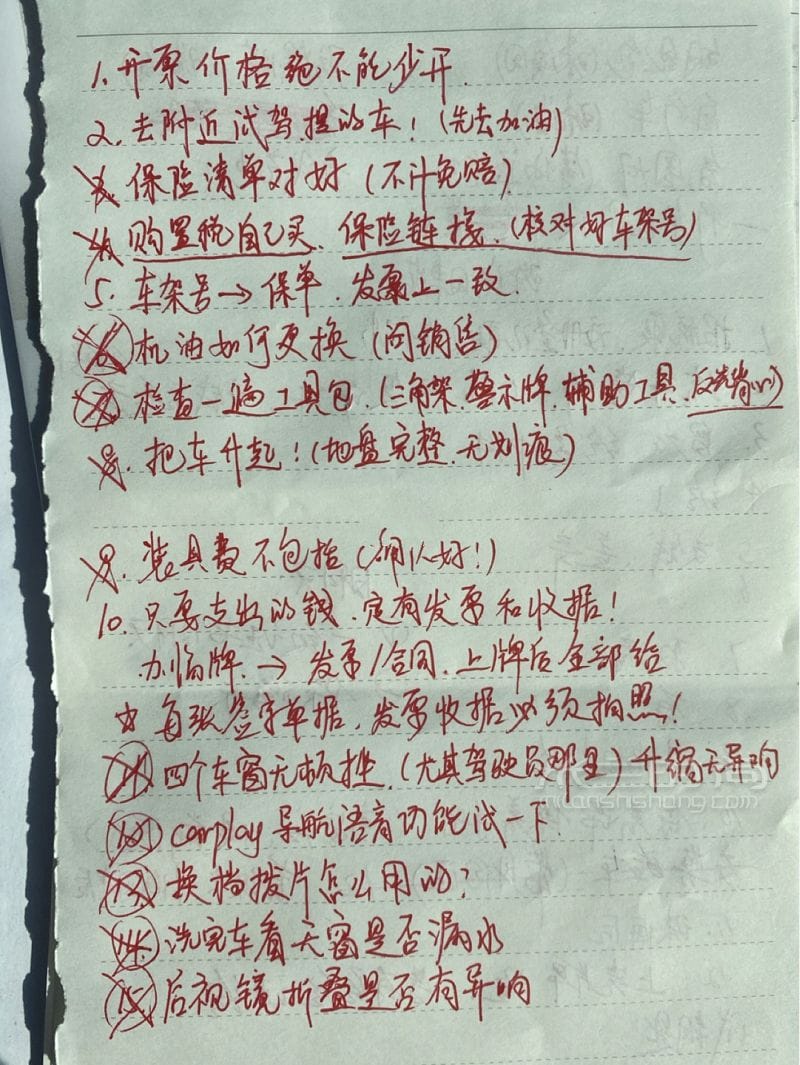 1. 开票价格绝不能少开.
2. 去附近试驾提的车！(先去加油)
3. 保险清单对好 (不计免赔)
4. 购置税自己买、保险链接. (核对好车架号)
5. 车架号→保单、发票上一致.
6. 机油如何更换 (问销售)
7. 检查一遍工具包. (三角架、警示牌、辅助工具、反光背心)
8. 把车升起！(地盘完整、无划痕)
9. 装具费不包括 (确认好！)
10. 只要支出的钱、定有发票和收据！
办临牌. → 发票/合同、上牌后全部给
☆ 每张签字单据、发票收据必须拍照！
11 四个车窗无顿挫. (尤其驾驶员那里) 升缩无异响
12 carplay 导航语音功能试一下.
13. 换档拨片怎么用的？
14. 洗完车看天窗是否漏水
15 后视镜折叠是否有异响
nianshishang.com